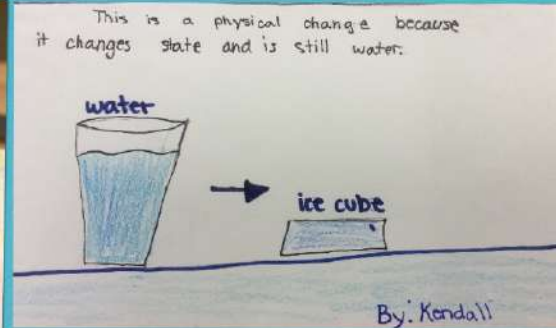 This is a physical change because
it changes state and is still water.
water
ice cube
By: Kendall